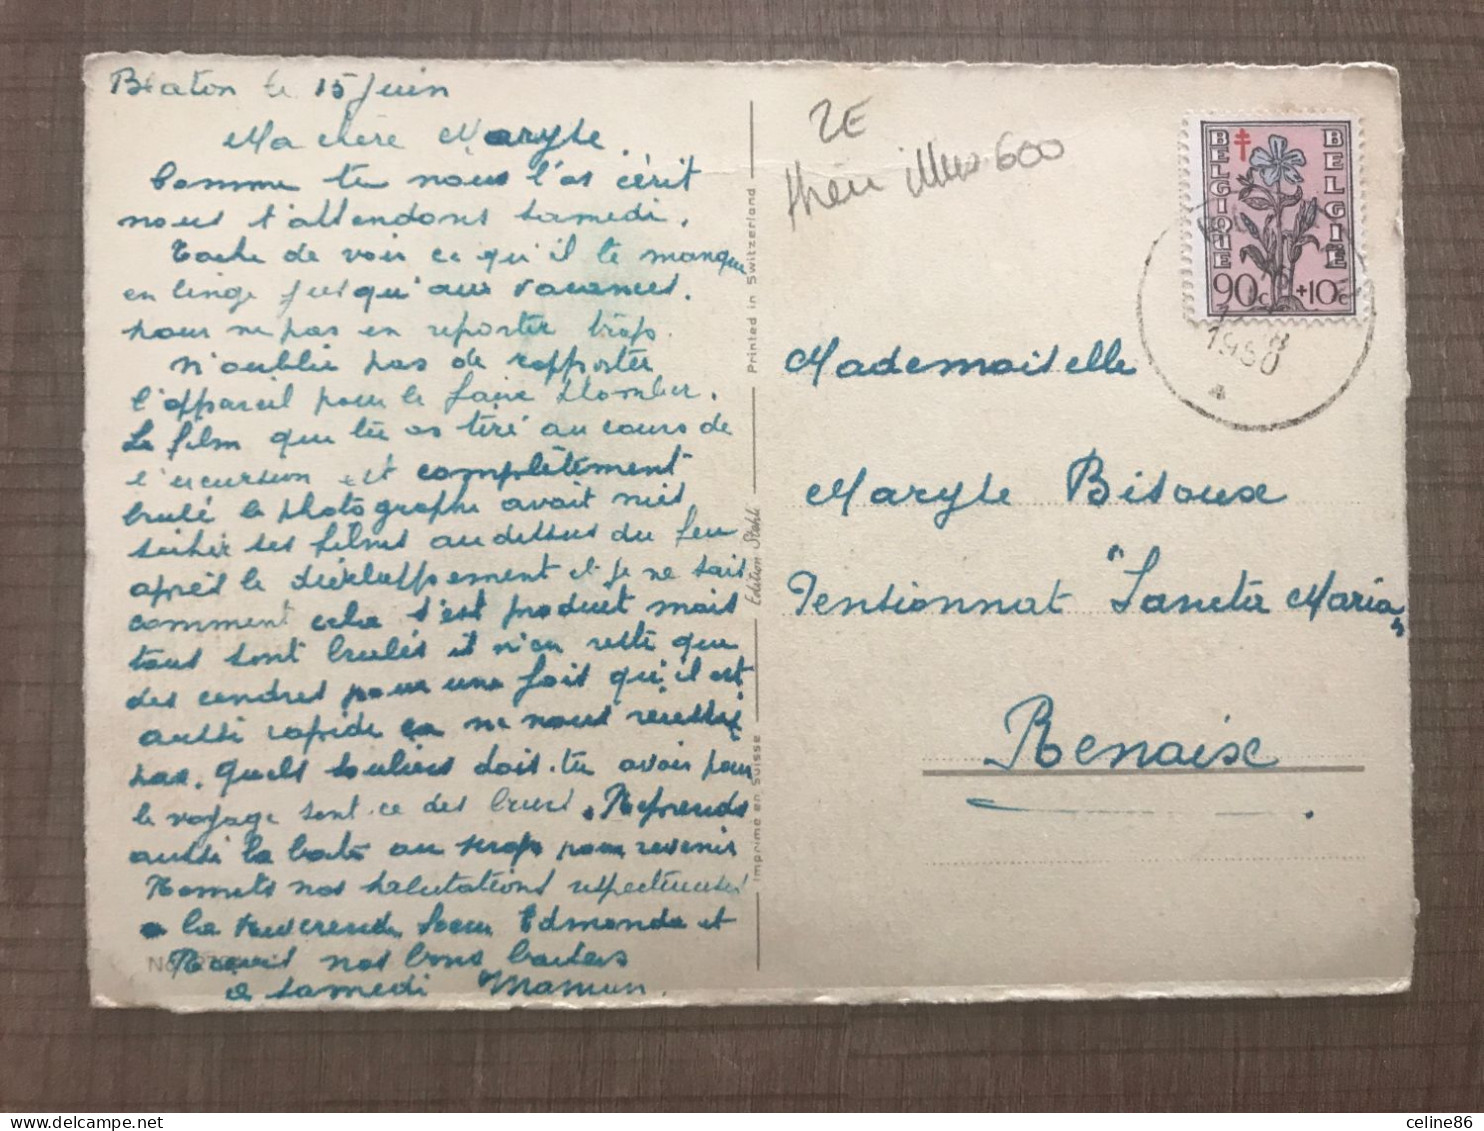 Blaton le 15 Juin
Ma chère Maryse.
Comme tu nous l'as écrit
nous t'attendons samedi.
Tache de voir ce qu'il te manque
en linge jusqu'aux vacances.
pour ne pas en reporter trop.
N'oublie pas de rapporter
l'appareil pour le faire
Le film que tu as tiré au cours de
l'excursion est complètement
brulé le photographe avait mis
sécher ses films au dessus du feu
après le développement et je ne sais
comment cela s'est produit mais
tous sont brulés il n'en reste que
des cendres pour une fois qu'il est
aussi rapide ça ne nous réussit
pas. Quels souliers dois-tu avoir pour
le voyage sont ce des bruns. Reprends
aussi la boite au sirop pour revenir
Remets nos salutations respectueuses
a la Révérende Soeur Edmonda et
Reçois nos bons baisers
a samedi Maman.
No
Printed in Switzerland
Edition Stehli
Imprimé en Suisse
2E
600
BELGIQUE
BELGIE
90c +10c
18
1950
Mademoiselle
Maryse Bisoux
Pensionnat "Sancta Maria"
Renaix
celine86